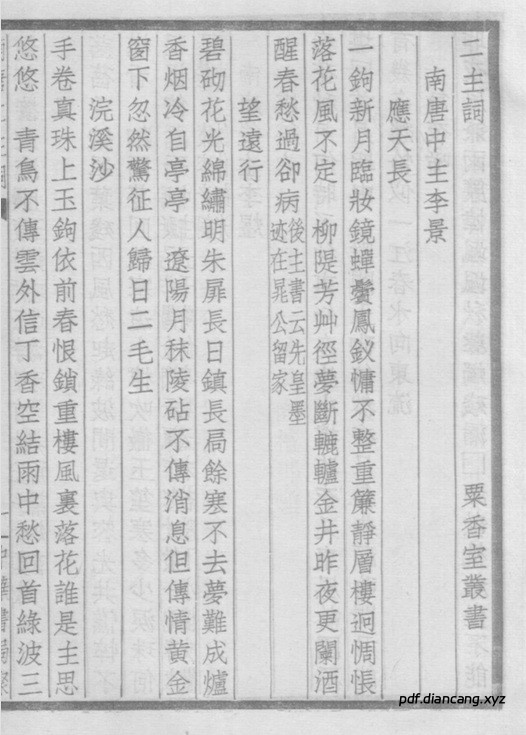 二主詞 粟香室叢書
南唐中主李景
應天長
一鉤新月臨妝鏡蟬鬢鳳釵慵不整重簾靜層樓迥惆悵
落花風不定 柳隄芳艸徑夢斷轆轤金井昨夜更闌酒
醒春愁過卻病後主書云先皇墨迹在晁公留家
望遠行
碧砌花光綿繡明朱扉長日鎮長扃餘寒不去夢難成爐
香烟冷自亭亭 遼陽月秣陵砧不傳消息但傳情黃金
窗下忽然驚征人歸日二毛生
浣溪沙
手卷真珠上玉鉤依前春恨鎖重樓風裏落花誰是主思
悠悠 青鳥不傳雲外信丁香空結雨中愁回首綠波三
pdf.diancang.xyz